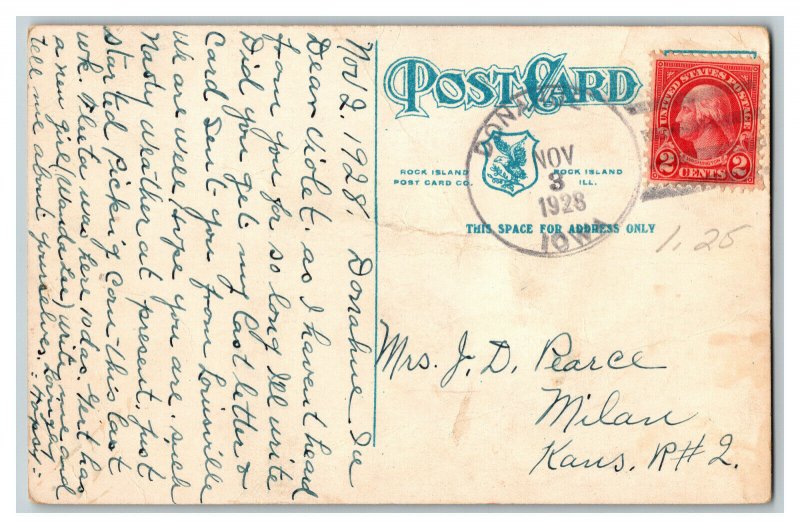 Nov 2. 1928. Donahue. Ia
Dear Violet. as I havent head
from you for so long Ill write
Did you get my last letter &
Card Sent you from Louisville
We are well hope you are. such
Nasty weather at present. Just
Started picking Corn this last
wk. was here 10 das. Gert has
a new girl (Wanda Lea) write me and
tell me about yourselves.
POST CARD
ROCK ISLAND
POST CARD CO.
ROCK ISLAND
ILL.
THIS SPACE FOR ADDRESS ONLY
NOV
3
1928
IOWA
UNITED STATES POSTAGE
WASHINGTON
2 CENTS 2
1.25
Mrs. J. D. Pearce
Milan
Kans. R#2.